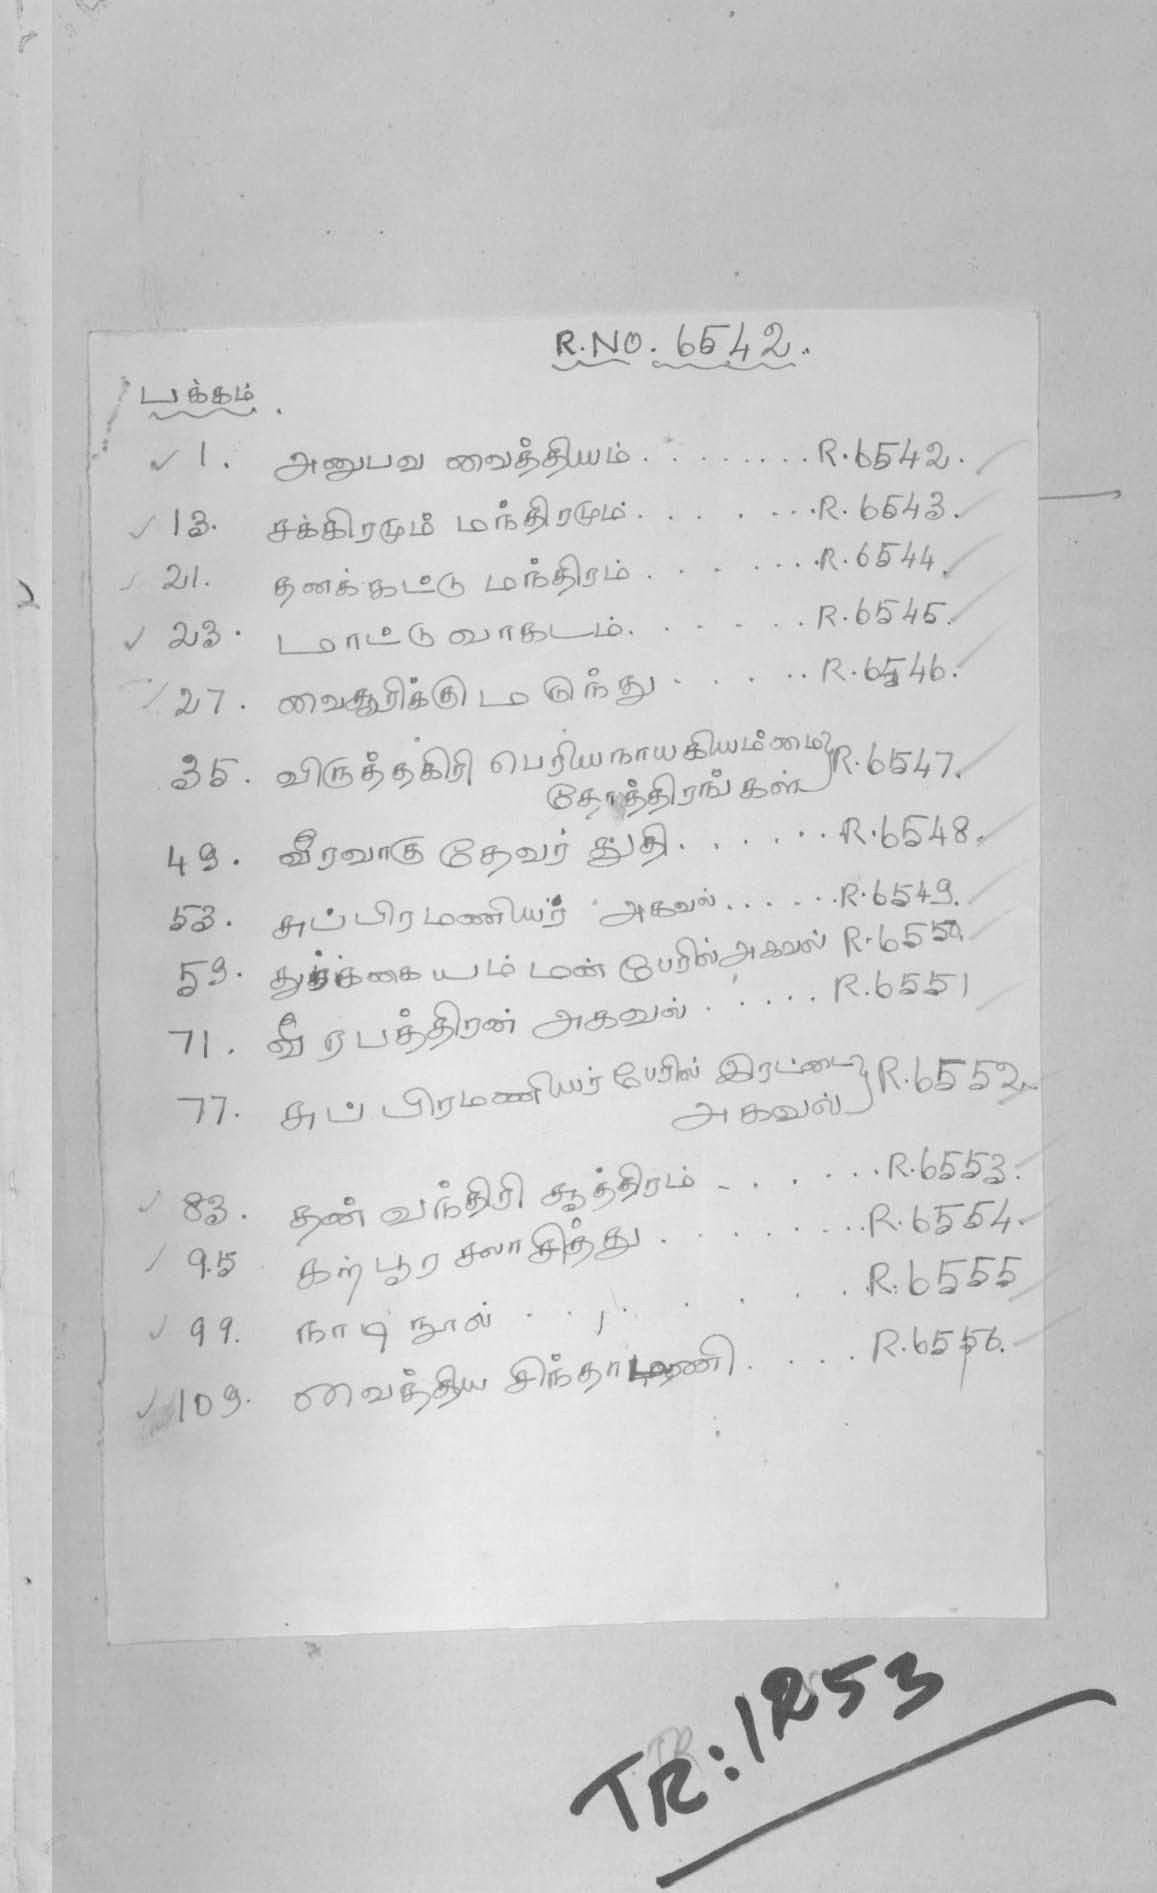 R.NO. 6542.
பக்கம்.
1. அனுபவ வைத்தியம் ........ R.6542.
13. சக்கிரமும் மந்திரமும் ....... R.6543.
21. தனக்கட்டு மந்திரம் ....... R.6544.
23. மாட்டு வாகடம் ...... R.6545.
27. வைசூரிக்கு மருந்து ..... R.6546.
35. விருத்தகிரி பெரியநாயகியம்மை R.6547.
தோத்திரங்கள்
49. வீரவாகு தேவர் துதி ...... R.6548.
53. சுப்பிரமணியர் அகவல் ...... R.6549.
59. துர்க்கையம்மன் பேரில் அகவல் R.6550.
71. வீரபத்திரன் அகவல் ..... R.6551
77. சுப்பிரமணியர் பேரில் இரட்டை R.6552.
அகவல்
83. தன்வந்திரி சூத்திரம் ...... R.6553.
95 கற்பூர சலாசித்து ....... R.6554.
99. நாடி நூல் ....... R.6555
109. வைத்திய சிந்தாமணி ..... R.6556.
TR:1253